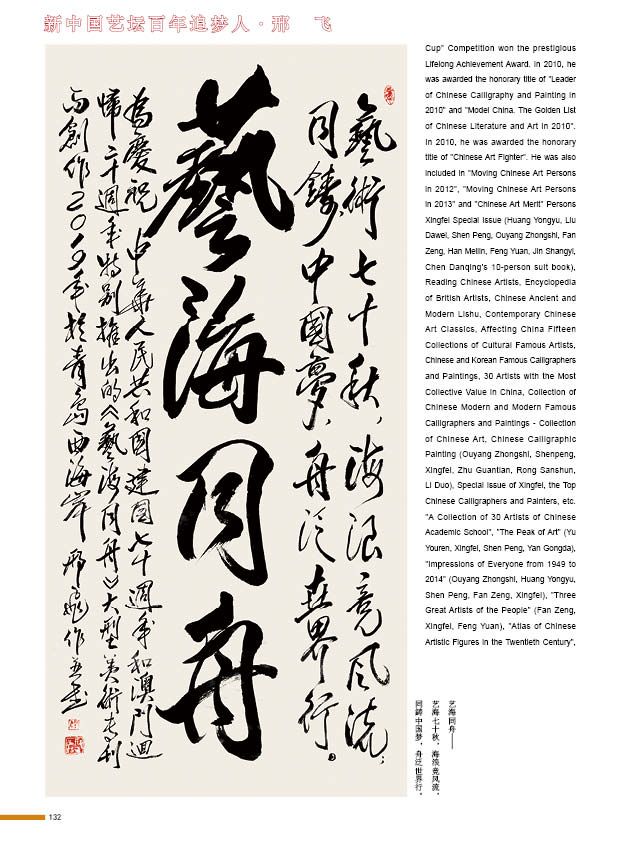 新中国艺坛百年追梦人·邢 飞
藝術七十秋，海浪竞风流；
同鑄中國夢，舟泛世界行。
藝海同舟
為慶祝中華人民共和國建國七十週年和澳門迴
歸二十週年特别推出的《藝海同舟》大型美術专刊
而創作2019年於青島西海岸 邢飛作并書
Cup" Competition won the prestigious
Lifelong Achievement Award. In 2010, he
was awarded the honorary title of "Leader
of Chinese Calligraphy and Painting in
2010" and "Model China. The Golden List
of Chinese Literature and Art in 2010".
In 2010, he was awarded the honorary
title of "Chinese Art Fighter". He was also
included in "Moving Chinese Art Persons
in 2012", "Moving Chinese Art Persons
in 2013" and "Chinese Art Merit" Persons
Xingfei Special Issue (Huang Yongyu, Liu
Dawei, Shen Peng, Ouyang Zhongshi, Fan
Zeng, Han Meilin, Feng Yuan, Jin Shangyi,
Chen Danqing's 10-person suit book),
Reading Chinese Artists, Encyclopedia
of British Artists, Chinese Ancient and
Modern Lishu, Contemporary Chinese
Art Classics, Affecting China Fifteen
Collections of Cultural Famous Artists,
Chinese and Korean Famous Calligraphers
and Paintings, 30 Artists with the Most
Collective Value in China, Collection of
Chinese Modern and Modern Famous
Calligraphers and Paintings - Collection
of Chinese Art, Chinese Calligraphic
Painting (Ouyang Zhongshi, Shenpeng,
Xingfei, Zhu Guantian, Rong Sanshun,
Li Duo), Special Issue of Xingfei, the Top
Chinese Calligraphers and Painters, etc.
"A Collection of 30 Artists of Chinese
Academic School", "The Peak of Art" (Yu
Youren, Xingfei, Shen Peng, Yan Gongda),
"Impressions of Everyone from 1949 to
2014" (Ouyang Zhongshi, Huang Yongyu,
Shen Peng, Fan Zeng, Xingfei), "Three
Great Artists of the People" (Fan Zeng,
Xingfei, Feng Yuan), "Atlas of Chinese
Artistic Figures in the Twentieth Century",
艺海同舟——
艺海七十秋，海浪竞风流，
同鋳中国梦，舟泛世界行。
132